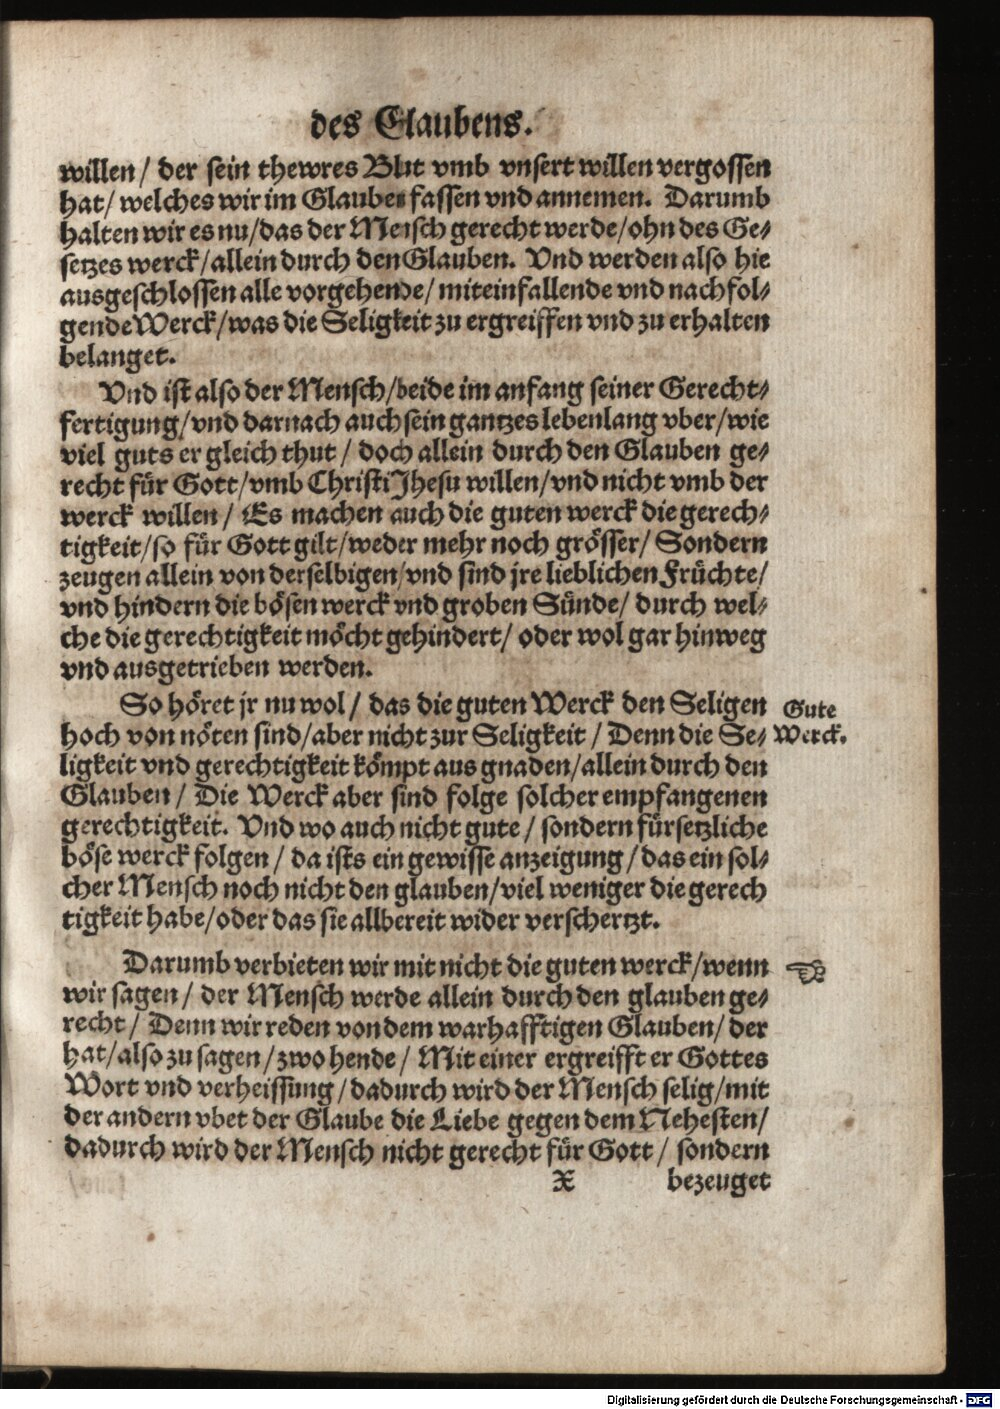 des Glaubens.
willen / der sein thewres Blut vmb vnsert willen vergossen
hat / welches wir im Glauben fassen vnd annemen. Darumb
halten wir es nu / das der Mensch gerecht werde / ohn des Ge⸗
setzes werck / allein durch den Glauben. Vnd werden also hie
ausgeschlossen alle vorgehende / miteinfallende vnd nachfol⸗
gende Werck / was die Seligkeit zu ergreiffen vnd zu erhalten
belanget.
Vnd ist also der Mensch / beide im anfang seiner Gerecht⸗
fertigung / vnd darnach auch sein gantzes lebenlang vber / wie
viel guts er gleich thut / doch allein durch den Glauben ge⸗
recht für Gott / vmb Christi Jhesu willen / vnd nicht vmb der
werck willen / Es machen auch die guten werck die gerech⸗
tigkeit / so für Gott gilt / weder mehr noch grösser / Sondern
zeugen allein von derselbigen / vnd sind jre lieblichen Früchte /
vnd hindern die bösen werck vnd groben Sünde / durch wel⸗
che die gerechtigkeit möcht gehindert / oder wol gar hinweg
vnd ausgetrieben werden.
So höret jr nu wol / das die guten Werck den Seligen
hoch von nöten sind / aber nicht zur Seligkeit / Denn die Se⸗
ligkeit vnd gerechtigkeit kömpt aus gnaden / allein durch den
Glauben / Die Werck aber sind folge solcher empfangenen
gerechtigkeit. Vnd wo auch nicht gute / sondern fürsetzliche
böse werck folgen / da ists ein gewisse anzeigung / das ein sol⸗
cher Mensch noch nicht den glauben / viel weniger die gerech
tigkeit habe / oder das sie allbereit wider verschertzt.
Gute
Werck.
Darumb verbieten wir mit nicht die guten werck / wenn
wir sagen / der Mensch werde allein durch den glauben ge⸗
recht / Denn wir reden von dem warhafftigen Glauben / der
hat / also zu sagen / zwo hende / Mit einer ergreifft er Gottes
Wort vnd verheissung / dadurch wird der Mensch selig / mit
der andern vbet der Glaube die Liebe gegen dem Nehesten /
dadurch wird der Mensch nicht gerecht für Gott / sondern
X bezeuget
Digitalisierung gefördert durch die Deutsche Forschungsgemeinschaft - DFG